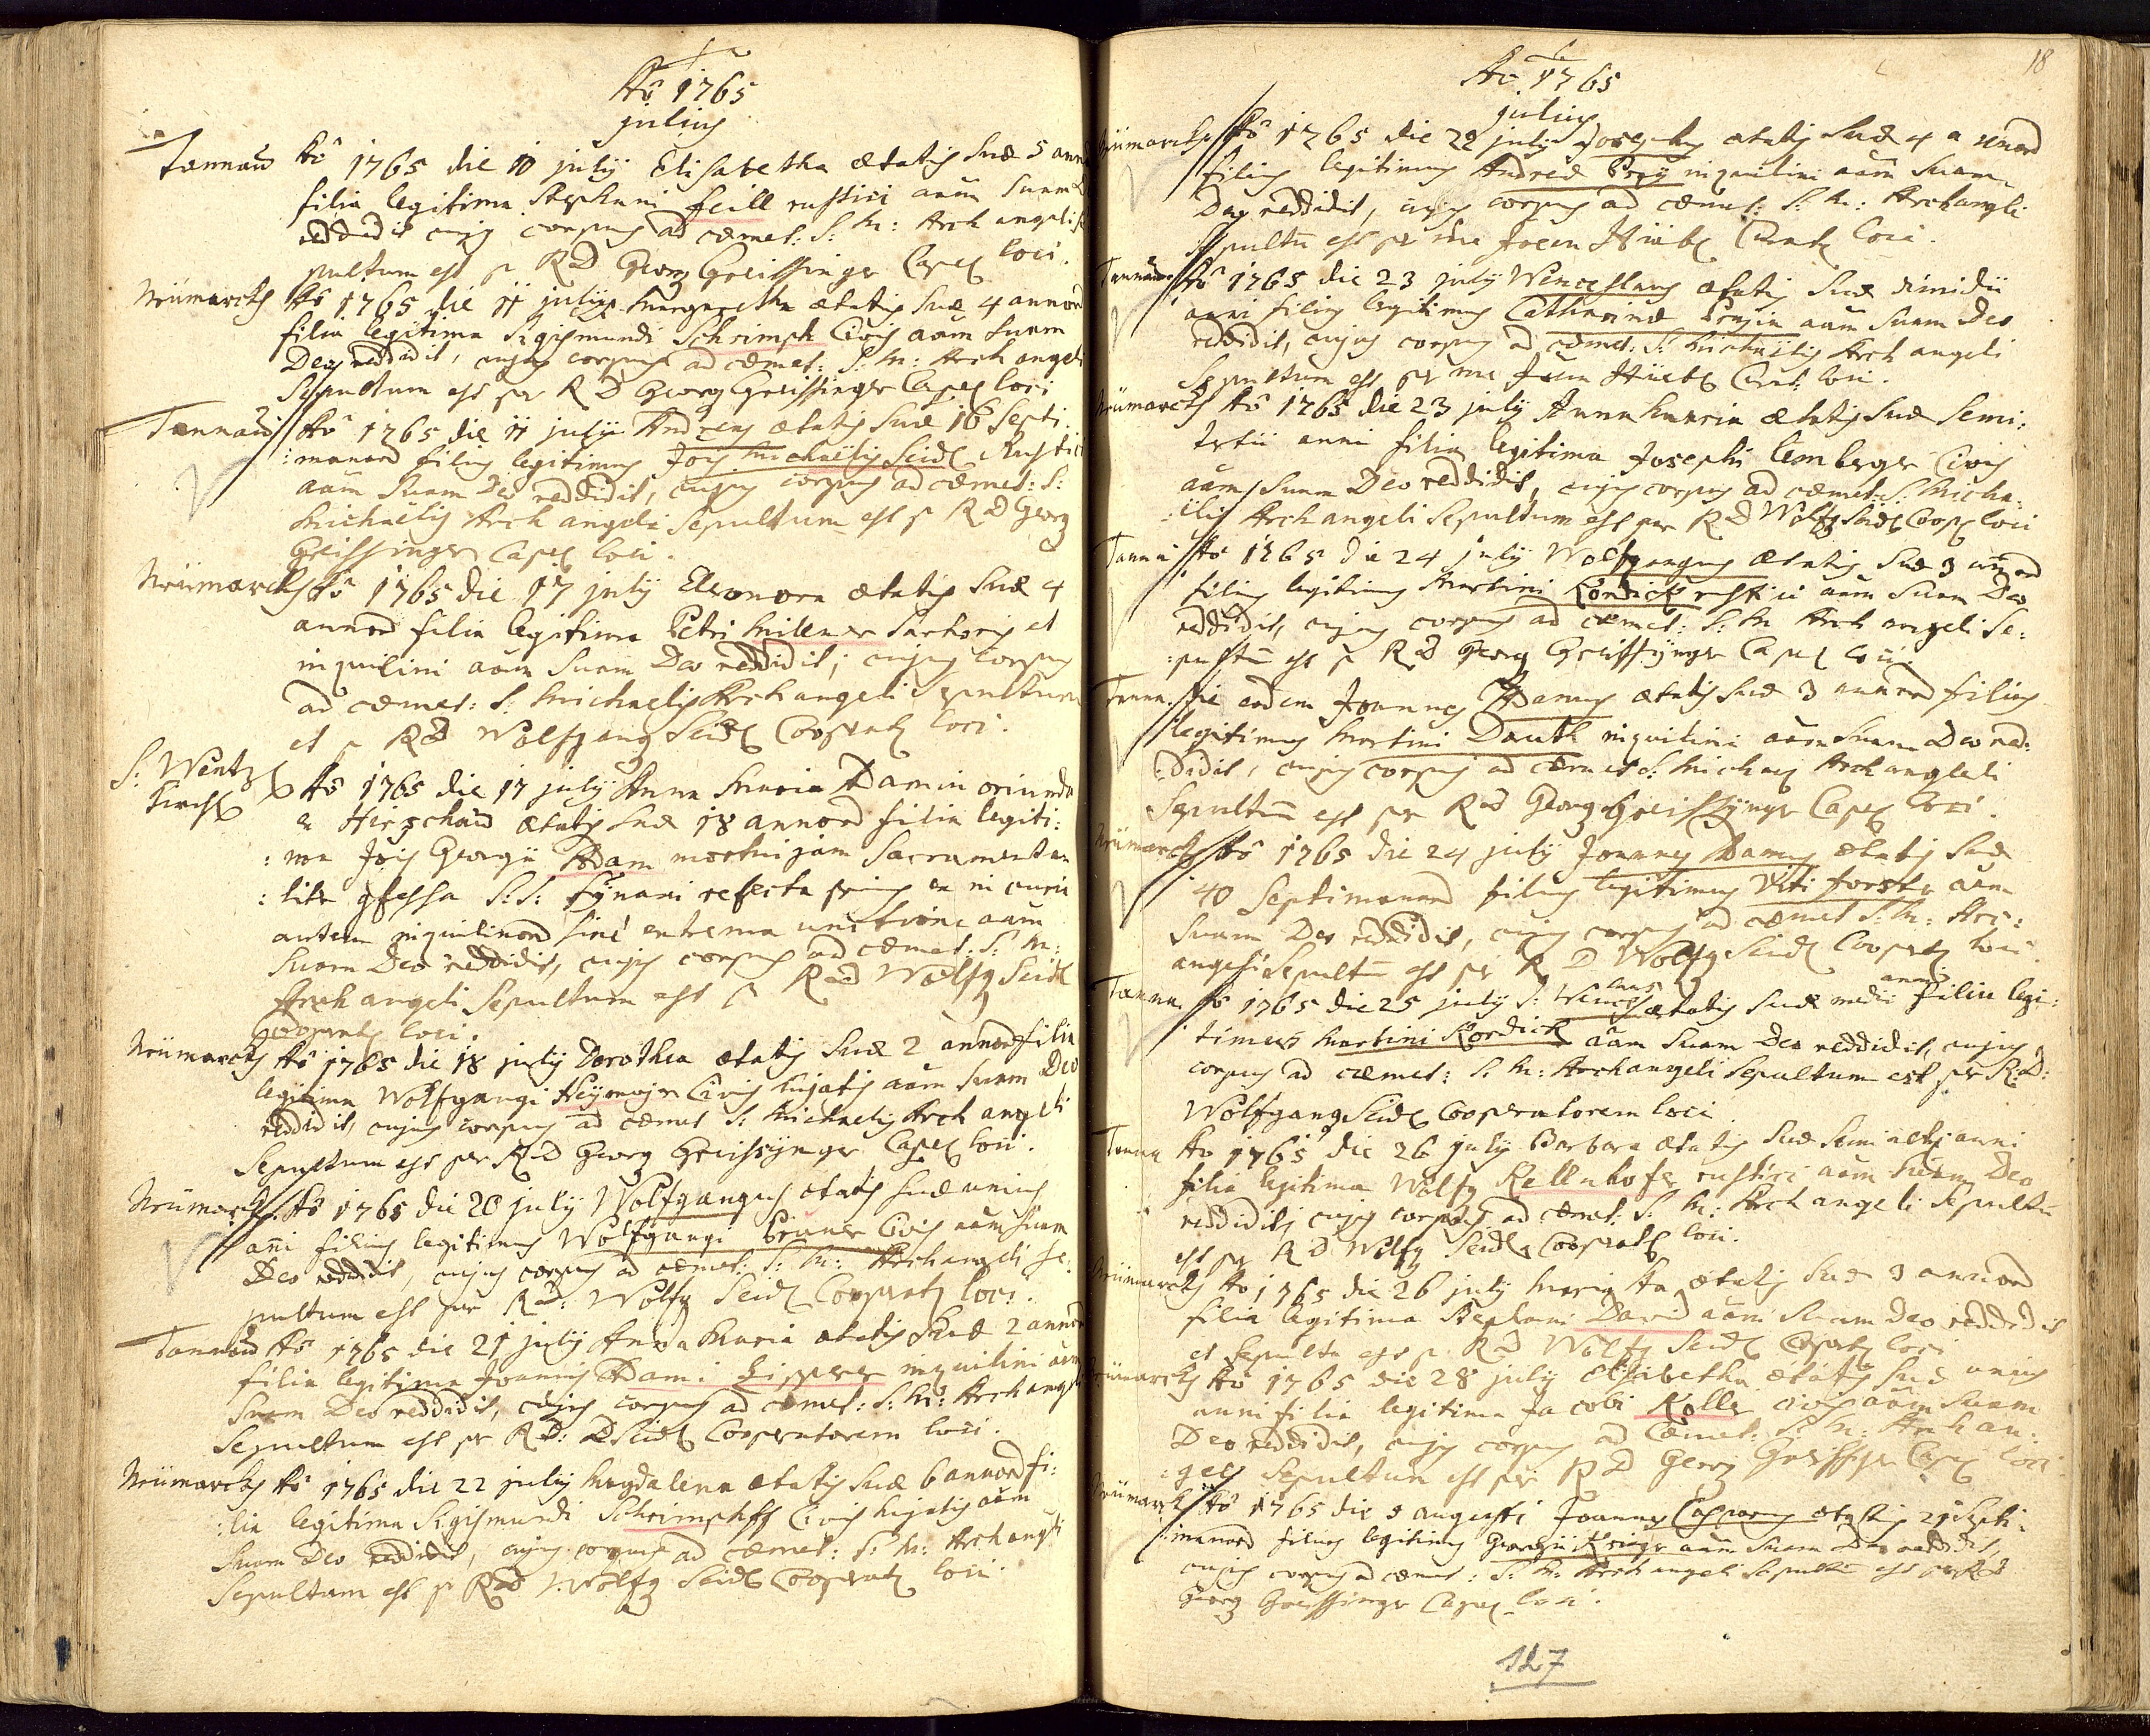 Aõ 1765
julius
Tannau Aõ 1765 die 10 julÿ Elisabetha ætatis suæ 5 ann
filia legitima Stephani Feill rustici aãm suam
reddidit cujus corpus ad cœmet: S: M: Arch angeli se
pultum est p RD Georg Greissinger Capel loci.
Neümarckh Aõ 1765 die 11 julÿ Margaretha ætatis suæ 4 annor
filia legitima Sigismundi Schrimpf Civis aãm suam
Deo reddidit, cujus corpus ad cœmet: S: M: Arch angeli
Sepultum est per R D Georg Greissinger Capel loci
Tannau Aõ 1765 die 11 julÿ Andreas ætatis suæ 16 Septi:
:manor filius legitimus Jois Michaëlis Seidl Rustici
aãm suam Deo reddidit, cujus corpus ad cœmet: S:
Michaëlis Arch angeli Sepultum est p RD Georg
Greissinger Capel loci.
Neümarckh Aõ 1765 die 17 julÿ Eleonora ætatis suæ 4
annor filia legitima Petri Millner Sartoris et
inquilini aãm suam Deo reddidit, cujus corpus
ad cœmet: S: Michaelis Arch angeli Sepultum
est p RD Wolfgang Seidl Cooperat loci.
S: Wentzl
Kirch Aõ 1765 die 17 julÿ Anna Maria Adamin oriunda
ex Hirschau ætatis suæ 18 annor filia legiti:
:ma Jois Georgii Adam mortui jam Sacramenta
:liter cfessa S:S: Synaxi refecta prius ex in curia
autem inquilinor sine extrema unctione aãm
suam Deo reddidit, cujus corpus ad cœmet: S: M:
Arch angeli Sepultum est p RD Wolfg Seidl
Cooperat loci.
Neümarckh Aõ 1765 die 18 julÿ Dorothea ætatis suæ 2 annor filia
legitima Wolfgangi Heÿmajer Civis hujatis aãm suam Deo
reddidit, cujus corpus ad cœmet S: Michaelis Arch angeli
Sepultum est per RD Georg Greissÿnger Capel loci.
Neümarckh Aõ 1765 die 20 julÿ Wolfgangus ætatis suæ unius
añi filius legitimus Wolfgangi Pruner Civis aãm suam
Deo reddidit, cujus corpus ad cœmet: S: M: Arch angeli se:
pultum est per RD: Wolfg Seidl Cooperat loci.
Tannau Aõ 1765 die 21 julÿ Anna Maria ætatis suæ 2 annor
filia legitima Joannis Adami Lipperer inquilini aãm
suam Deo reddidit, cujus corpus ad cœmet: S: M: Arch angeli
Sepultum est per RD: D Seidl Cooperatorem loci.
Neümarckh Aõ 1765 die 22 julÿ Magdalena ætatis suæ 6 annor fi:
:lia legitima Sigismundi Schrimpff Civis hujatis aãm
suam Deo reddidit, cujus corpus ad cœmet: S: M: Arch angeli
Sepultum est p RD Wolfg Seidl Cooperat loci.
18
Aõ 1765
julius
Neümarckh Aõ 1765 die 22 julÿ Josephus ætatis suæ 4 annor
filius legitimus Andreæ Preÿ inquilini aãm suam
Deo reddidit, cujus corpus ad cœmet: S: M: Archangeli
Sepultũ est per me Joem Curat loci.
Tannau Aõ 1765 die 23 julÿ Wenceslaus ætatis suæ dimidii
anni filius legitimus Catharinæ aãm suam Deo
reddidit, cujus corpus ad cœmet: S: Michaëlis Arch angeli
Sepultum est per me Joem Curat: loci.
Neümarckh Aõ 1765 die 23 julÿ Anna Maria ætatis suæ Semi:
tertii anni filia legitima Josephi Lemberger Civis
aãm suam Deo reddidit, cujus corpus ad cœmet: S: Micha:
:ëlis Arch angeli Sepultum est per RD Wolfg Seidl Coop loci
Tannau Aõ 1765 die 24 julÿ Wolfgangus ætatis suæ 3 annor
filius legitimus Martini Kordick rustici aãm suam Deo
reddidit, cujus corpus ad cœmet: S: M: Arch angeli Se:
:pultũ est p RD Georg Greissÿnger Capel loci.
Tannau die eodem Joannes Adamus ætatis suæ 3 annor filius
legitimus Martini Dauth inquilini aãm suam Deo red:
:didit, cujus corpus ad cœmet S: Michaelis Arch angeli
Sepultũ est per RD Georg Greissÿnger Capel loci.
Neümarckh Aõ 1765 die 24 julÿ Joannes Adamus ætatis suæ
40 Septimanar filius legitimus Viti Forster aãm
suam Deo reddidit, cujus corpus ad cœmet S: M: Arc:
angeli Sepultũ est per R D Wolfg Seidl Cooperat loci.
Tannau Aõ 1765 die 25 julÿ S: Wenceslaus ætatis suæ medii anni filius legi:
timus Martini Kordick aãm suam Deo reddidit, cujus
corpus ad cœmet: S: M: Archangeli Sepultum est per R:D:
Wolfgang Seidl Cooperatorem loci
Tannau Aõ 1765 die 26 julÿ Barbara ætatis suæ anni
filia legitima Wolfg Kellnhofer rustici aãm suam Deo
reddidit, cujus corpus ad cœmet: S: M: Arch angeli Sepultũ
est per RD Wolfg Seidl Cooperat loci.
Neümarckh Aõ 1765 die 26 julÿ Maria An ætatis suæ 3 annor
filia legitima Stephani David aãm suam Deo reddidit
et Sepulta est p RD Wolfg Seidl Cooperat loci
Neümarckh Aõ 1765 die 28 julÿ Elisabetha ætatis suæ unius
anni filia legitima Jacobi Koller civis aãm suam
Deo reddidit, cujus corpus ad Cœmet: S: M: Arch an:
:geli Sepultum est per RD Georg Greissger Capel loci.
Neümarckh Aõ 1765 die 3 augusti Joannes Casparus ætatis 21 Septi:
:manar filius legitimus Georgii Krieger aãm suam Deo reddidit,
cujus corpus ad cœmet: S: M: Arch angeli Sepultũ est per RD
Georg Greissinger Capel loci.
127